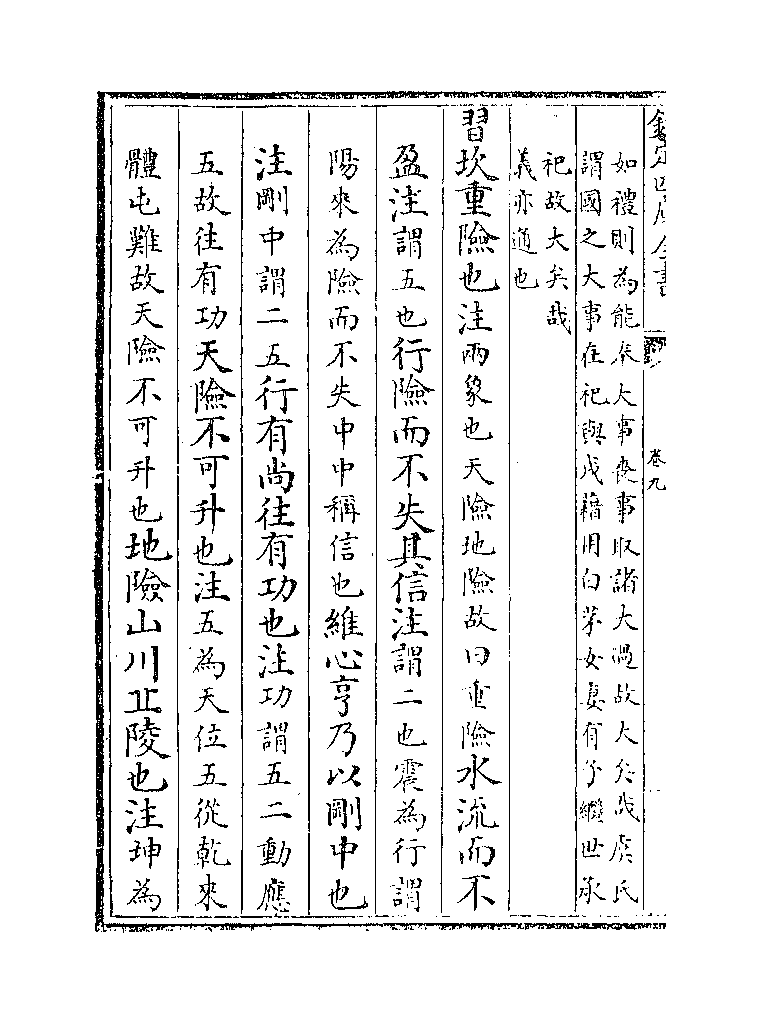 欽定四庫全書
卷九
如禮則為能奉大事喪事取諸大過故大矣哉虞氏
謂國之大事在祀與戎藉用白茅女妻有子繼世承
祀故大矣哉
義亦通也
習坎重險也注兩象也天險地險故曰重險水流而不
盈注謂五也行險而不失其信注謂二也震為行謂
陽來為險而不失中中稱信也維心亨乃以剛中也
注剛中謂二五行有尚往有功也注功謂五二動應
五故往有功天險不可升也注五為天位五從乾來
體屯難故天險不可升也地險山川丘陵也注坤為